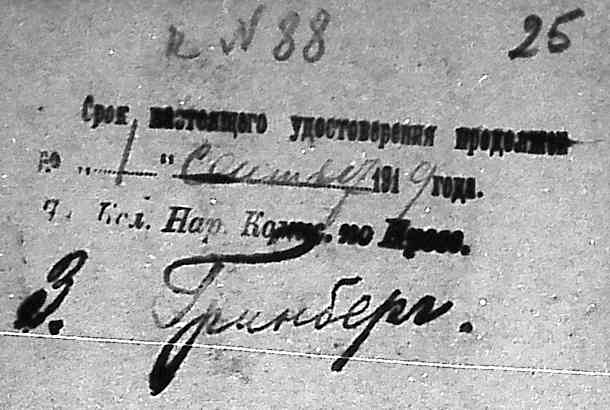 к № 88 25
Срок настоящего удостоверения продолжен
до „1“ сентября 1919 года.
Чл. Кол. Нар. Комис. по Просв.
З. Гринберг.